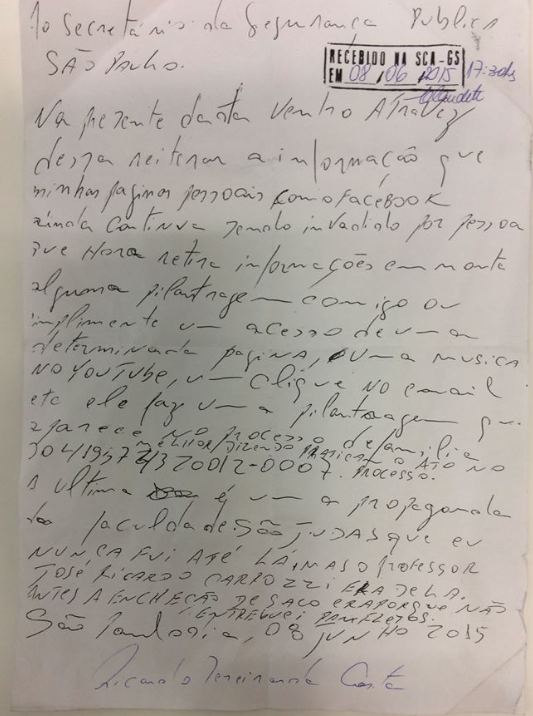 Ao Secretário da Segurança Publica
São Paulo.
RECEBIDO NA SCA-GS
EM 08/06/2015 17:30hs
Claudete
Na presente data venho Atravez
dessa reiterar a informação que
minhas paginas pessoais como Facebook
ainda continua sendo invadido por pessoa
que Hora retira informações em monta
alguma pilantragem comigo ou
implimente um acesso de uma
determinada pagina, ou uma musica
NO YOUTUBE, um clique NO email
etc ele faz uma pilantragem que
aparece NO processo de familia
melhor dizendo praticam o ATO NO PROCESSO.
A ultima é uma propaganda
da faculdade São JUDAS que eu
NUNCA FUI ATÉ LÁ, MAS O PROFESSOR
JOSÉ RICARDO CARROZZI ERA DE LA.
ANTES A ENCHEÇÃO DE SACO ERA PORQUE NÃO
ENTREGUEI PANFLETOS.
São Paulo, 08 JUNHO 2015
Ricardo Pereira da Costa